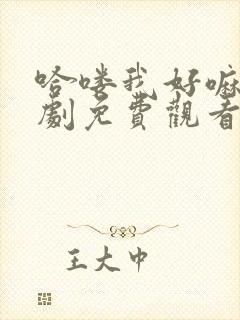 哈嘍我好嘛
劇免費觀看
王大中